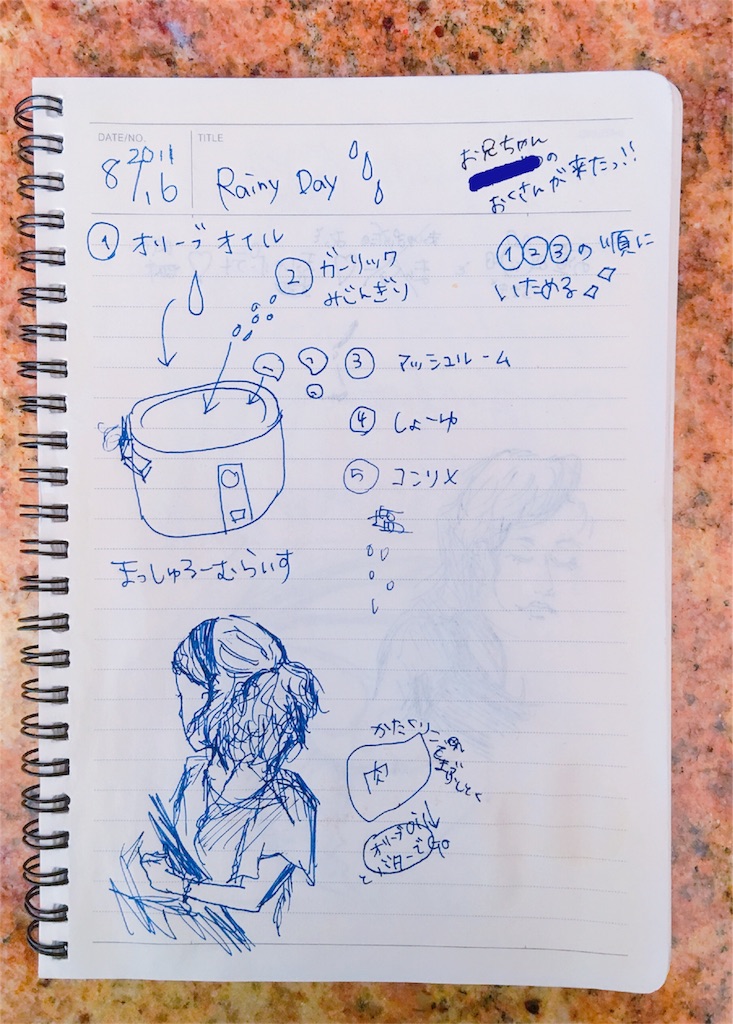 DATE/NO.
2011
8/16
TITLE
Rainy Day
お兄ちゃん
の
おくさんが来たっ!!
① オリーブオイル
② ガーリック
みじんぎり
①②③の順に
いためる
③ マッシュルーム
④ しょーゆ
⑤ コンソメ
塩
まっしゅるーむらいす
かたくりこ
まぶしとく
肉
オリーブoil
と バターでGo